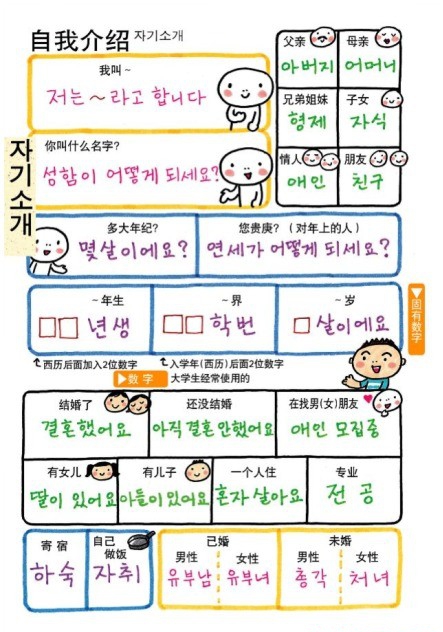 自我介绍 자기소개
我叫~
저는~라고 합니다
父亲
아버지
母亲
어머니
兄弟姐妹
형제
子女
자식
情人
애인
朋友
친구
자기소개
你叫什么名字?
성함이 어떻게 되세요?
多大年纪?
몇살이에요?
您贵庚? (对年上的人)
연세가 어떻게 되세요?
~年生
□□ 년생
~界
□□ 학번
~岁
□ 살이에요
固有数字
西历后面加入2位数字
入学年(西历)后面2位数字
数字
大学生经常使用的
结婚了
결혼했어요
还没结婚
아직 결혼 안했어요
在找男(女)朋友
애인 모집중
有女儿
딸이 있어요
有儿子
아들이 있어요
一个人住
혼자 살아요
专业
전공
寄宿
하숙
自己做饭
자취
已婚
男性
유부남
女性
유부녀
未婚
男性
총각
女性
처녀